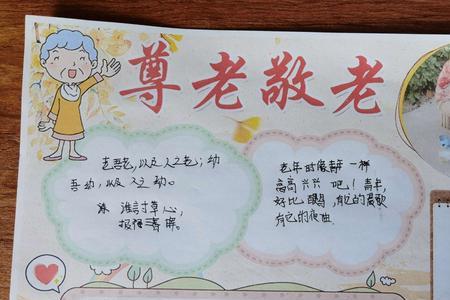 尊老敬老
老吾老,以及人之老;幼
吾幼,以及人之幼。
谁言寸草心,
报得三春晖。
老年时像青年一样
高高兴兴吧!青年,
好比 ,有它的晨歌
有它的夜曲.